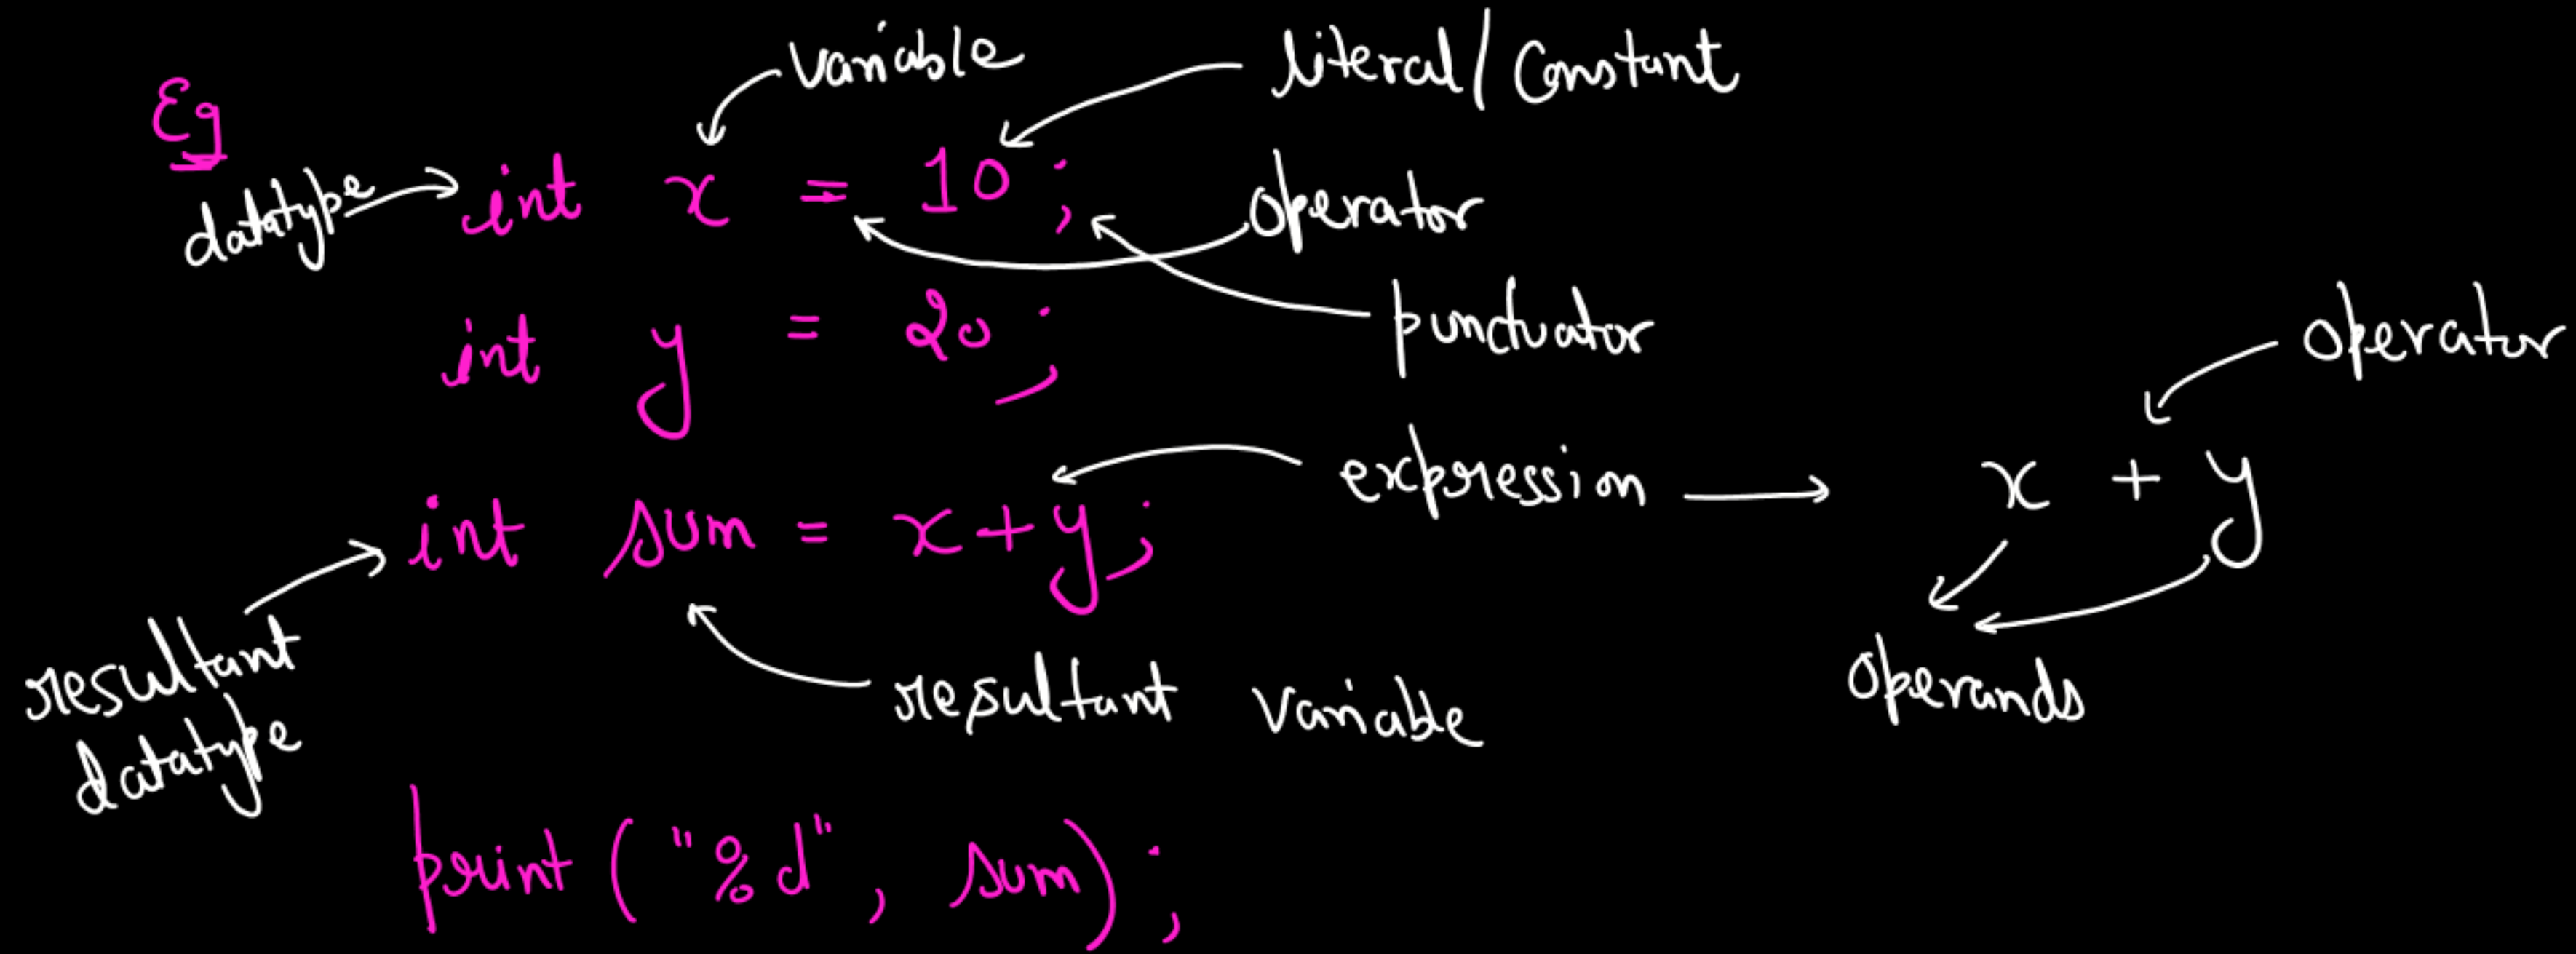 Eg
variable
literal/Constant
datatype
int x = 10;
operator
punctuator
int y = 20;
operator
expression
x + y
int sum = x+y;
operands
resultant
datatype
resultant variable
print ("%d", sum);